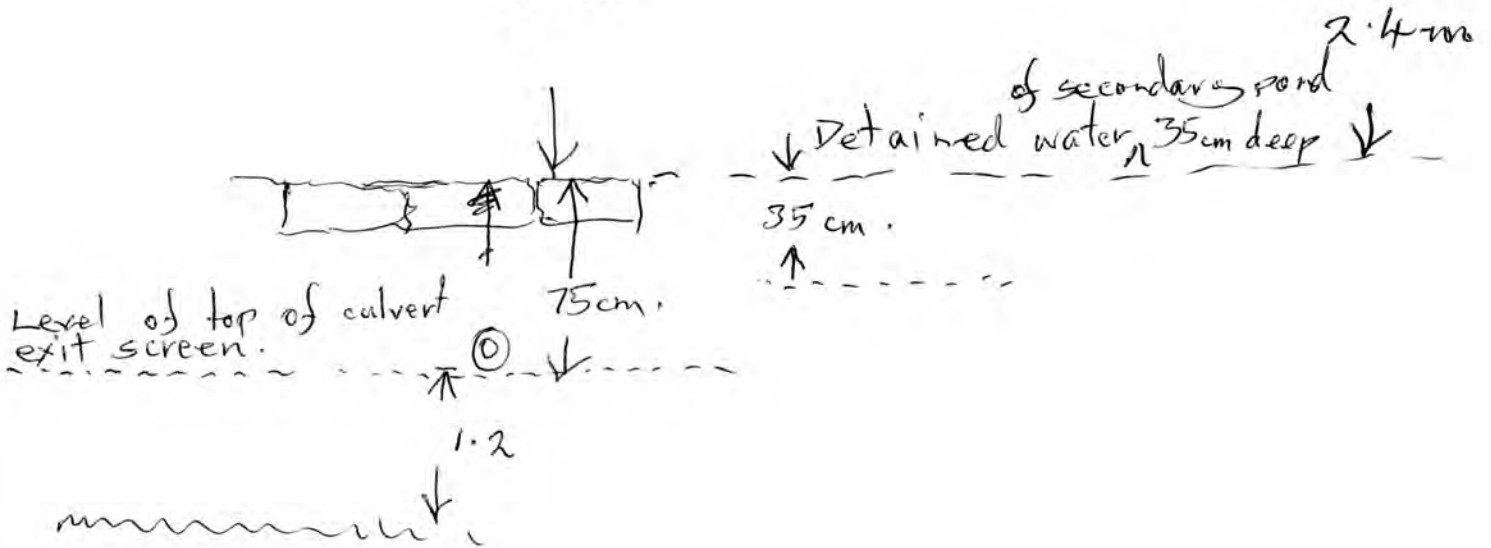 2.4m
of secondary pond
Detained water 35cm deep
35 cm.
75cm.
Level of top of culvert
exit screen.
0
1.2